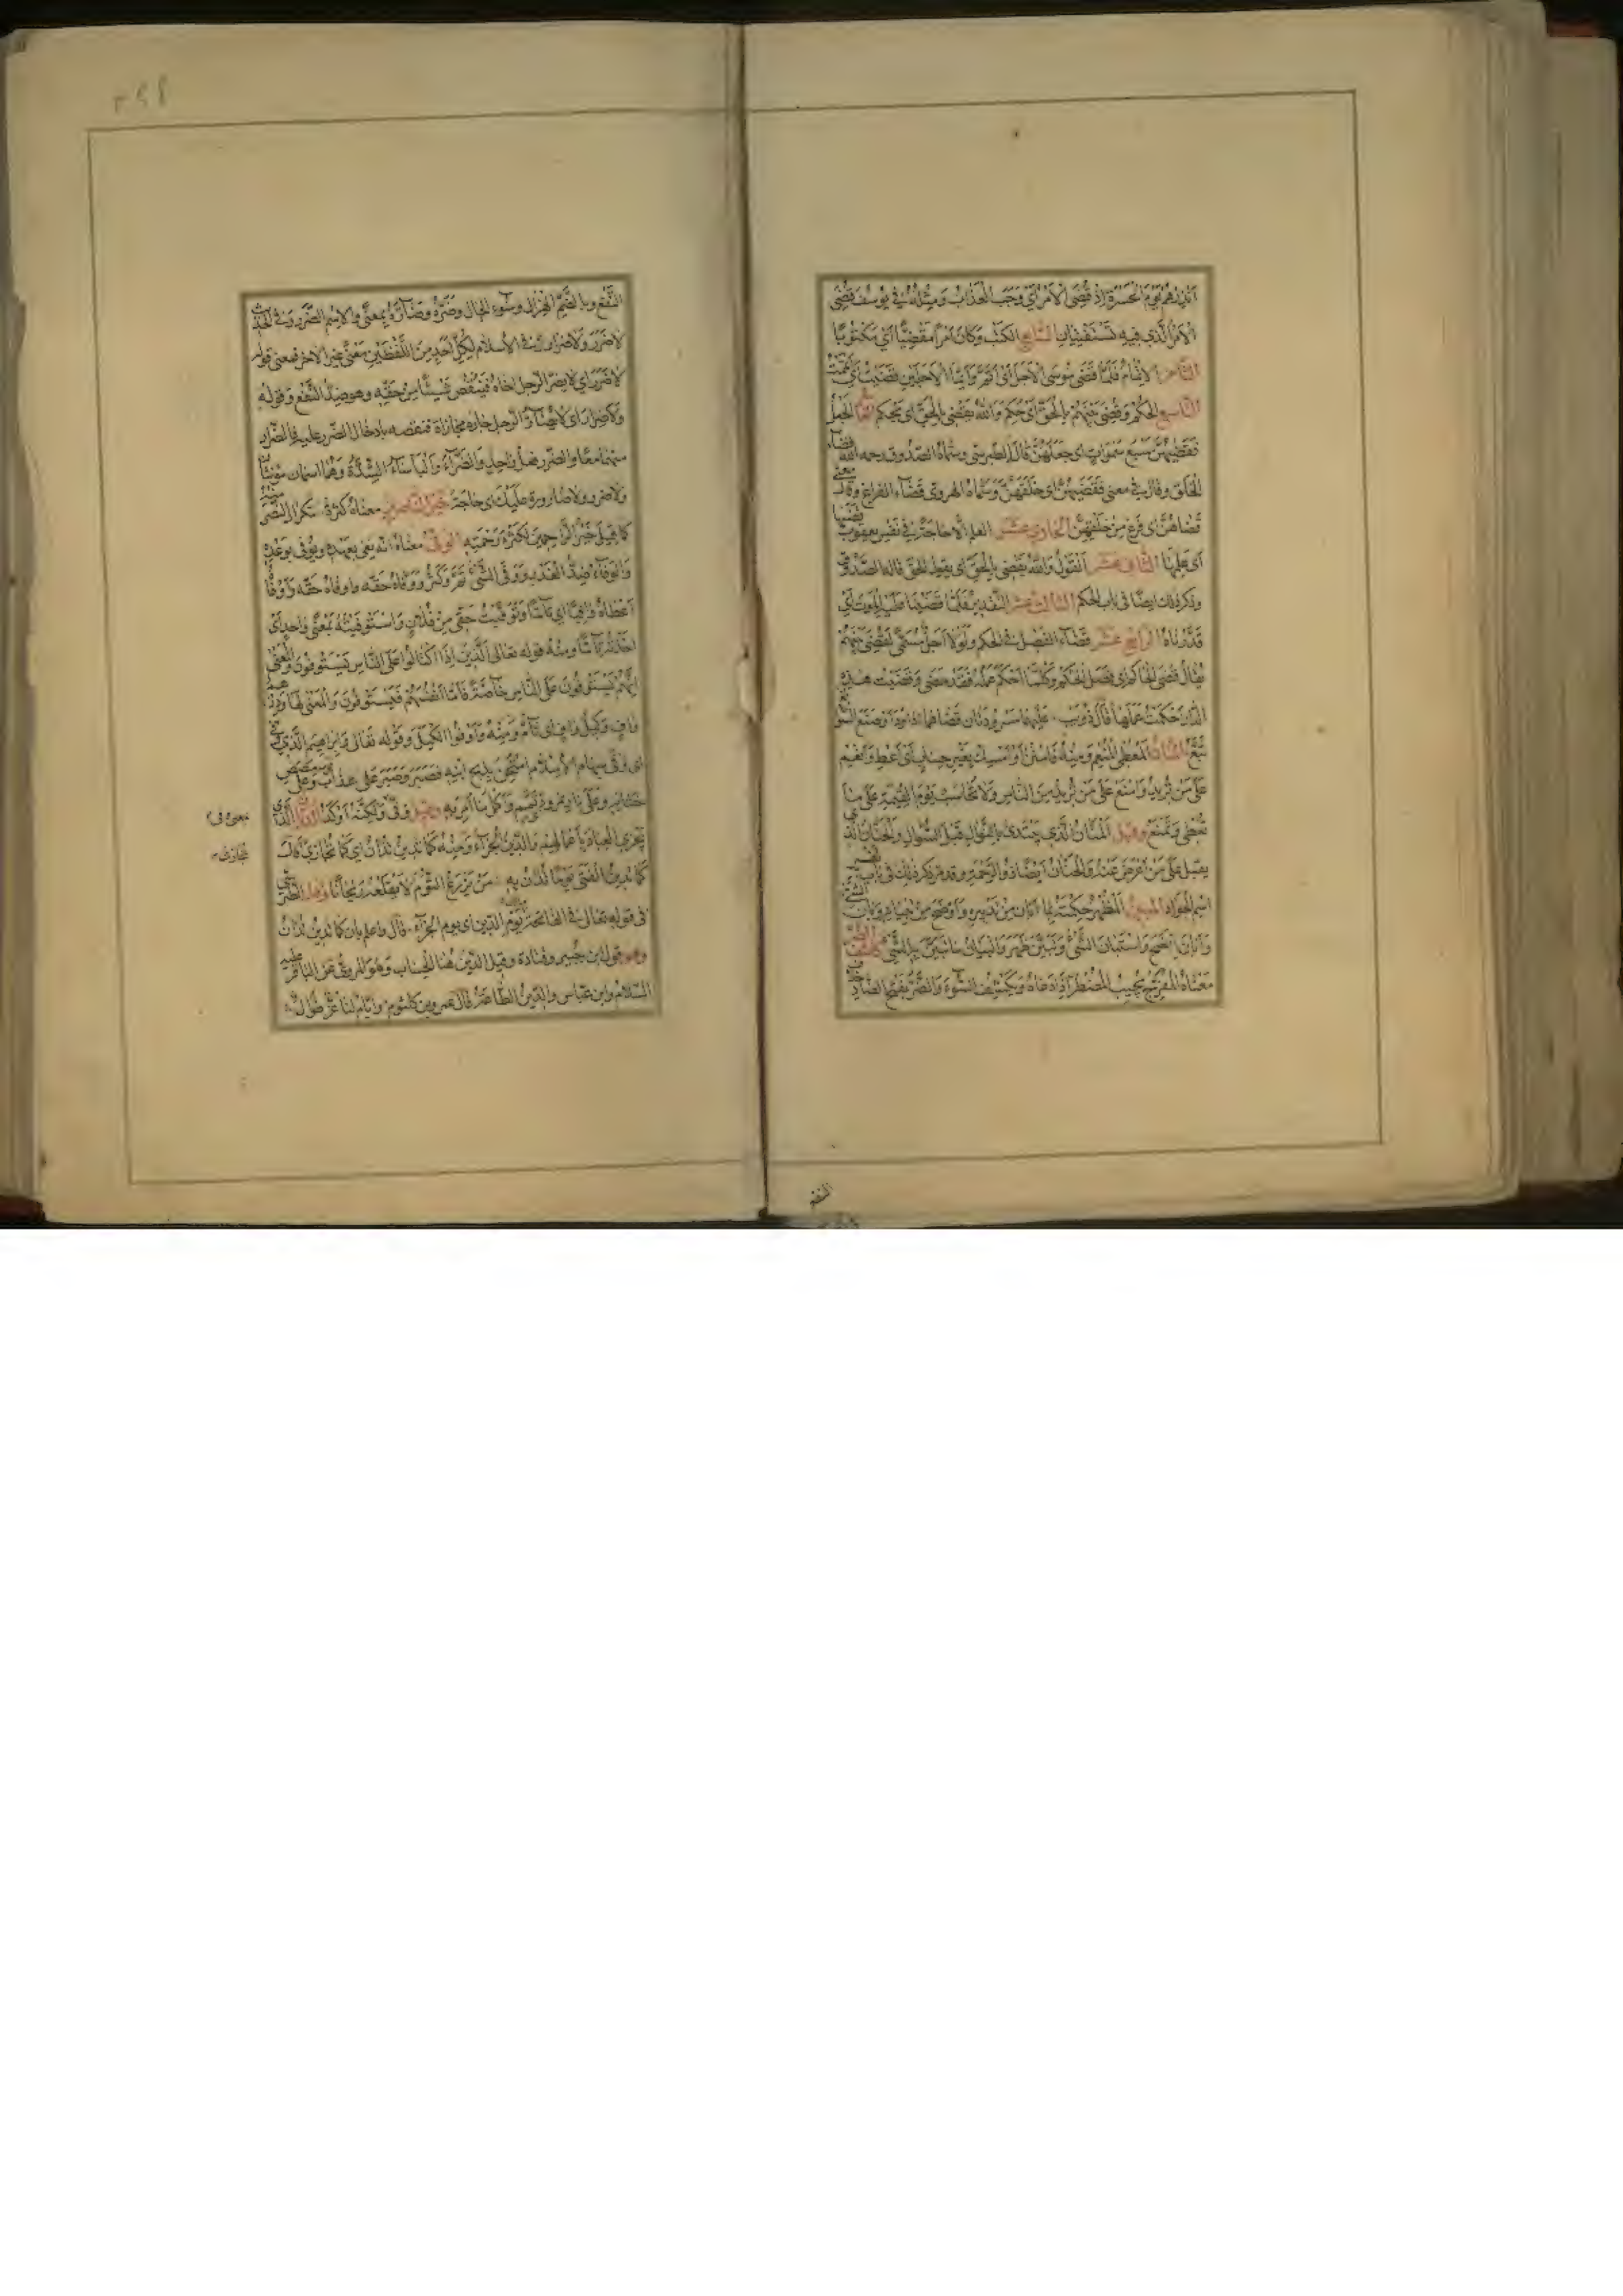 انذرهم يوم الحسرة اذ قضى الامر اي وجب العذاب ومثله في يوسف قضى
الامر الذي فيه تستفتيان السابع الكتب وكان امرا مقضيا اي مكتوبا
الثامن الاتمام فلما قضى موسى الاجل اي اتم وايما الاجلين قضيت اي اتممت
التاسع الحكم وقضى بينهم بالحق اي حكم والله يقضى بالحق اي يحكم الجعل
فقضيهن سبع سموات اي جعلهن قال الطبرسى وسماه الصدوق رحمه الله قضاء
الخلق وقال في معنى فقضيهن اي خلقهن وسماه الهروى قضاء الفراغ وقال معنى
قضاهن اي فرغ من خلقهن الحادي عشر العلم الا حاجة في نفس يعقوب قضيها
اي علمها الثاني عشر القول والله يقضى بالحق اي يقول الحق قاله الصدوق
وذكر ذلك ايضا في باب الحكم الثالث عشر التقدير فلما قضينا عليه الموت اي
قدرناه الرابع عشر قضاء الفصل في الحكم ولولا اجل مسمى لقضى بينهم
يقال قضى الحاكم اي فصل الحكم وكلما احكم عمله فقد قضى وقضيت هذه
الدار احكمت عملها قال ابو ذويب وعليهما مسرودتان قضاهما داود او صنع السوابغ
تبع المنان المعطي المنعم ومنه فامنن او امسك بغير حساب اي اعط وانعم
على من تريد وامنع على من تريد من الناس ولا تحاسب يوم القيمة على ما
تعطى وتمنع وقيل المنان الذي يبتدئ بالنوال قبل السؤال والحنان الذي
يقبل على من اعرض عنه والحنان ايضا ذو الرحمة وقد مر ذكر ذلك في باب تفسير
اسم الجواد المبين المظهر حكمته بما ابان من تدبيره واوضح من بيانه وبان الشيء
وابان اتضح واستبان الشئ وتبين ظهر والبيان ما تبين به الشئ كاشف الضر
معناه المفرج يجيب المضطر اذا دعاه ويكشف السوء والضر بفتح الضاد خلاف
النفع
النفع وبالضم الهزال وسوء الحال وضره وضاره بمعنى والاسم الضرر وفي الحديث
لا ضرر ولا ضرار في الاسلام لكل احد من اللفظين معنى غير الاخر فمعنى قوله
لا ضرر اي لا يضر الرجل اخاه فينقص شيئا من حقه وهو ضد النفع وقوله
ولا ضرار اي لا يضار الرجل جاره مجازاة فينقصه بادخال الضرر عليه فالضرار
منهما معا والضرر فعل واحد والضراء والباساء الشدة وهما اسمان مؤنثان
ولا ضرر ولا ضارورة عليك اي حاجة خير الناصرين معناه كثرة تكرار النصر منه
كما قيل خير الراحمين لكثرة رحمته الوفى معناه انه يفى بعهده ويوفى بوعده
والوفاء ضد الغدر ووفى الشئ تم وكثر ووفاه حقه واوفاه حقه ووفا
اعطاه وافيا اي تاما وتوفيت حقى من فلان واستوفيته بمعنى واحد اي
اخذته تاما ومنه قوله تعالى الذين اذا اكتالوا على الناس يستوفون والمعنى
انهم يستوفون على الناس خاصة فاما انفسهم فيستوفون والمعنى لها
واف وكيل واف اي تام ومنه واوفوا الكيل وقوله تعالى وابراهيم الذي وفى
اي وفى سهام الاسلام امتحن بذبح ابنه فصبر وصبر على عذاب قومه
ختانه وعلى نار نمرود فتمم واكمل ما امر به وقيل وفى ولكنه اوكد الديان الذي
معنى وفى
يجزي العباد باعمالهم والدين الجزاء ومنه كما تدين تدان اي كما تجازى قال
تجازى
كما يدين الفتى يوما يدان به من يزرع الثوم لا يقلعه ريحانا وقال الطبرسي
في قوله تعالى في الفاتحة مالك يوم الدين اي يوم الجزاء قال واعلم بان كما تدين تدان
وهو قول ابن جبير وقتادة وقيل الدين هنا الحساب وهو المروي عن الباقر عليه
السلام وابن عباس والدين الطاعة قال عمرو بن كلثوم وايام لنا غر طوال